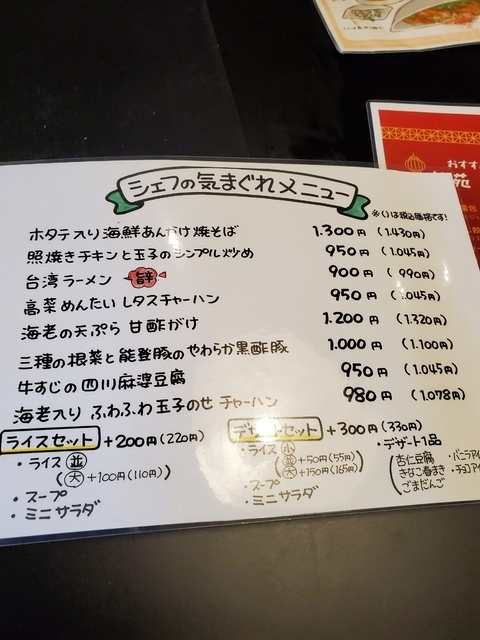 おすす
苑
シェフの気まぐれメニュー
※()は税込価格です!
ホタテ入り海鮮あんかけ焼そば 1.300円 (1.430円)
照焼きチキンと玉子のシンプル炒め 950円 (1.045円)
台湾ラーメン 旨辛 900円 (990円)
高菜めんたいレタスチャーハン 950円 (1.045円)
海老の天ぷら 甘酢がけ 1.200円 (1.320円)
三種の根菜と能登豚のやわらか黒酢豚 1.000円 (1.100円)
牛すじの四川麻婆豆腐 950円 (1.045円)
海老入り ふわふわ玉子のせ チャーハン 980円 (1.078円)
ライスセット +200円(220円)
・ライス 並
大 +100円(110円)
・スープ
・ミニサラダ
デザートセット +300円(330円)
・ライス 小
並 +50円(55円)
大 +150円(165円)
・スープ
・ミニサラダ
・デザート1品
杏仁豆腐 ・バニラアイ
きなこ春まき ・チョコアイ
ごまだんご